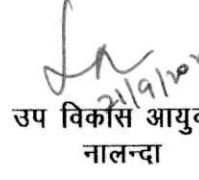 21/9/202
उप विकास आयु
नालन्दा